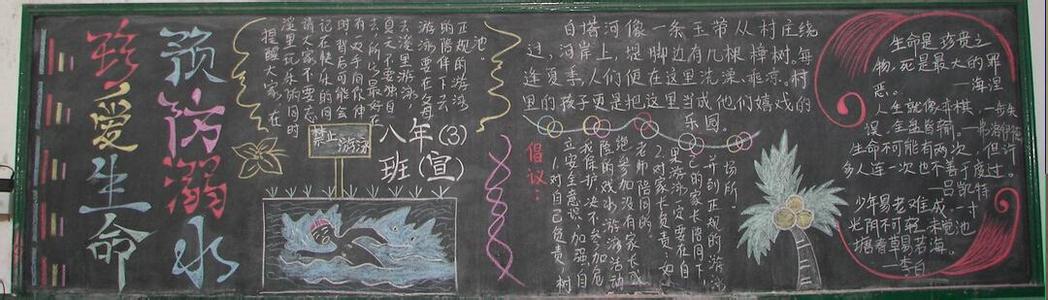 预防溺水
珍爱生命
提醒大家,在
溪里玩乐的同时
请大家不要忘
记在快乐的同
时背后可能会
有一双手同你伸
去,所以最好在
夏天不要独自
去溪里游泳
游泳要在父母
的陪伴下去
正规的游泳
池。
禁止游泳
八年(3)
班(宣)
白塔河像一条玉带从村庄绕
过,河岸上,堤脚边有几棵樟树。每
连夏季,人们便在这里洗澡、乘凉。村
里的孩子更是把这里当成他们嬉戏的
乐园。
倡议:
1.对自己负责,树
立安全意识,加强自
我保护,决不参加危
险的戏水游泳活动
绝参加没有家长或
老师陪同的
2.对家长负责:如
果游泳一定要在自
己的家长陪同下,
并到正规的游泳
场所.
生命是珍贵之
物,死是最大的罪
恶。
—海涅
人生就像弈棋,一步失
误,全盘皆输。—弗洛伊德
生命不可能有两次,但许
多人连一次也不善于度过。
—吕凯特
少年易老难成,一寸
光阴不可轻。未觉池
塘春草
—李白